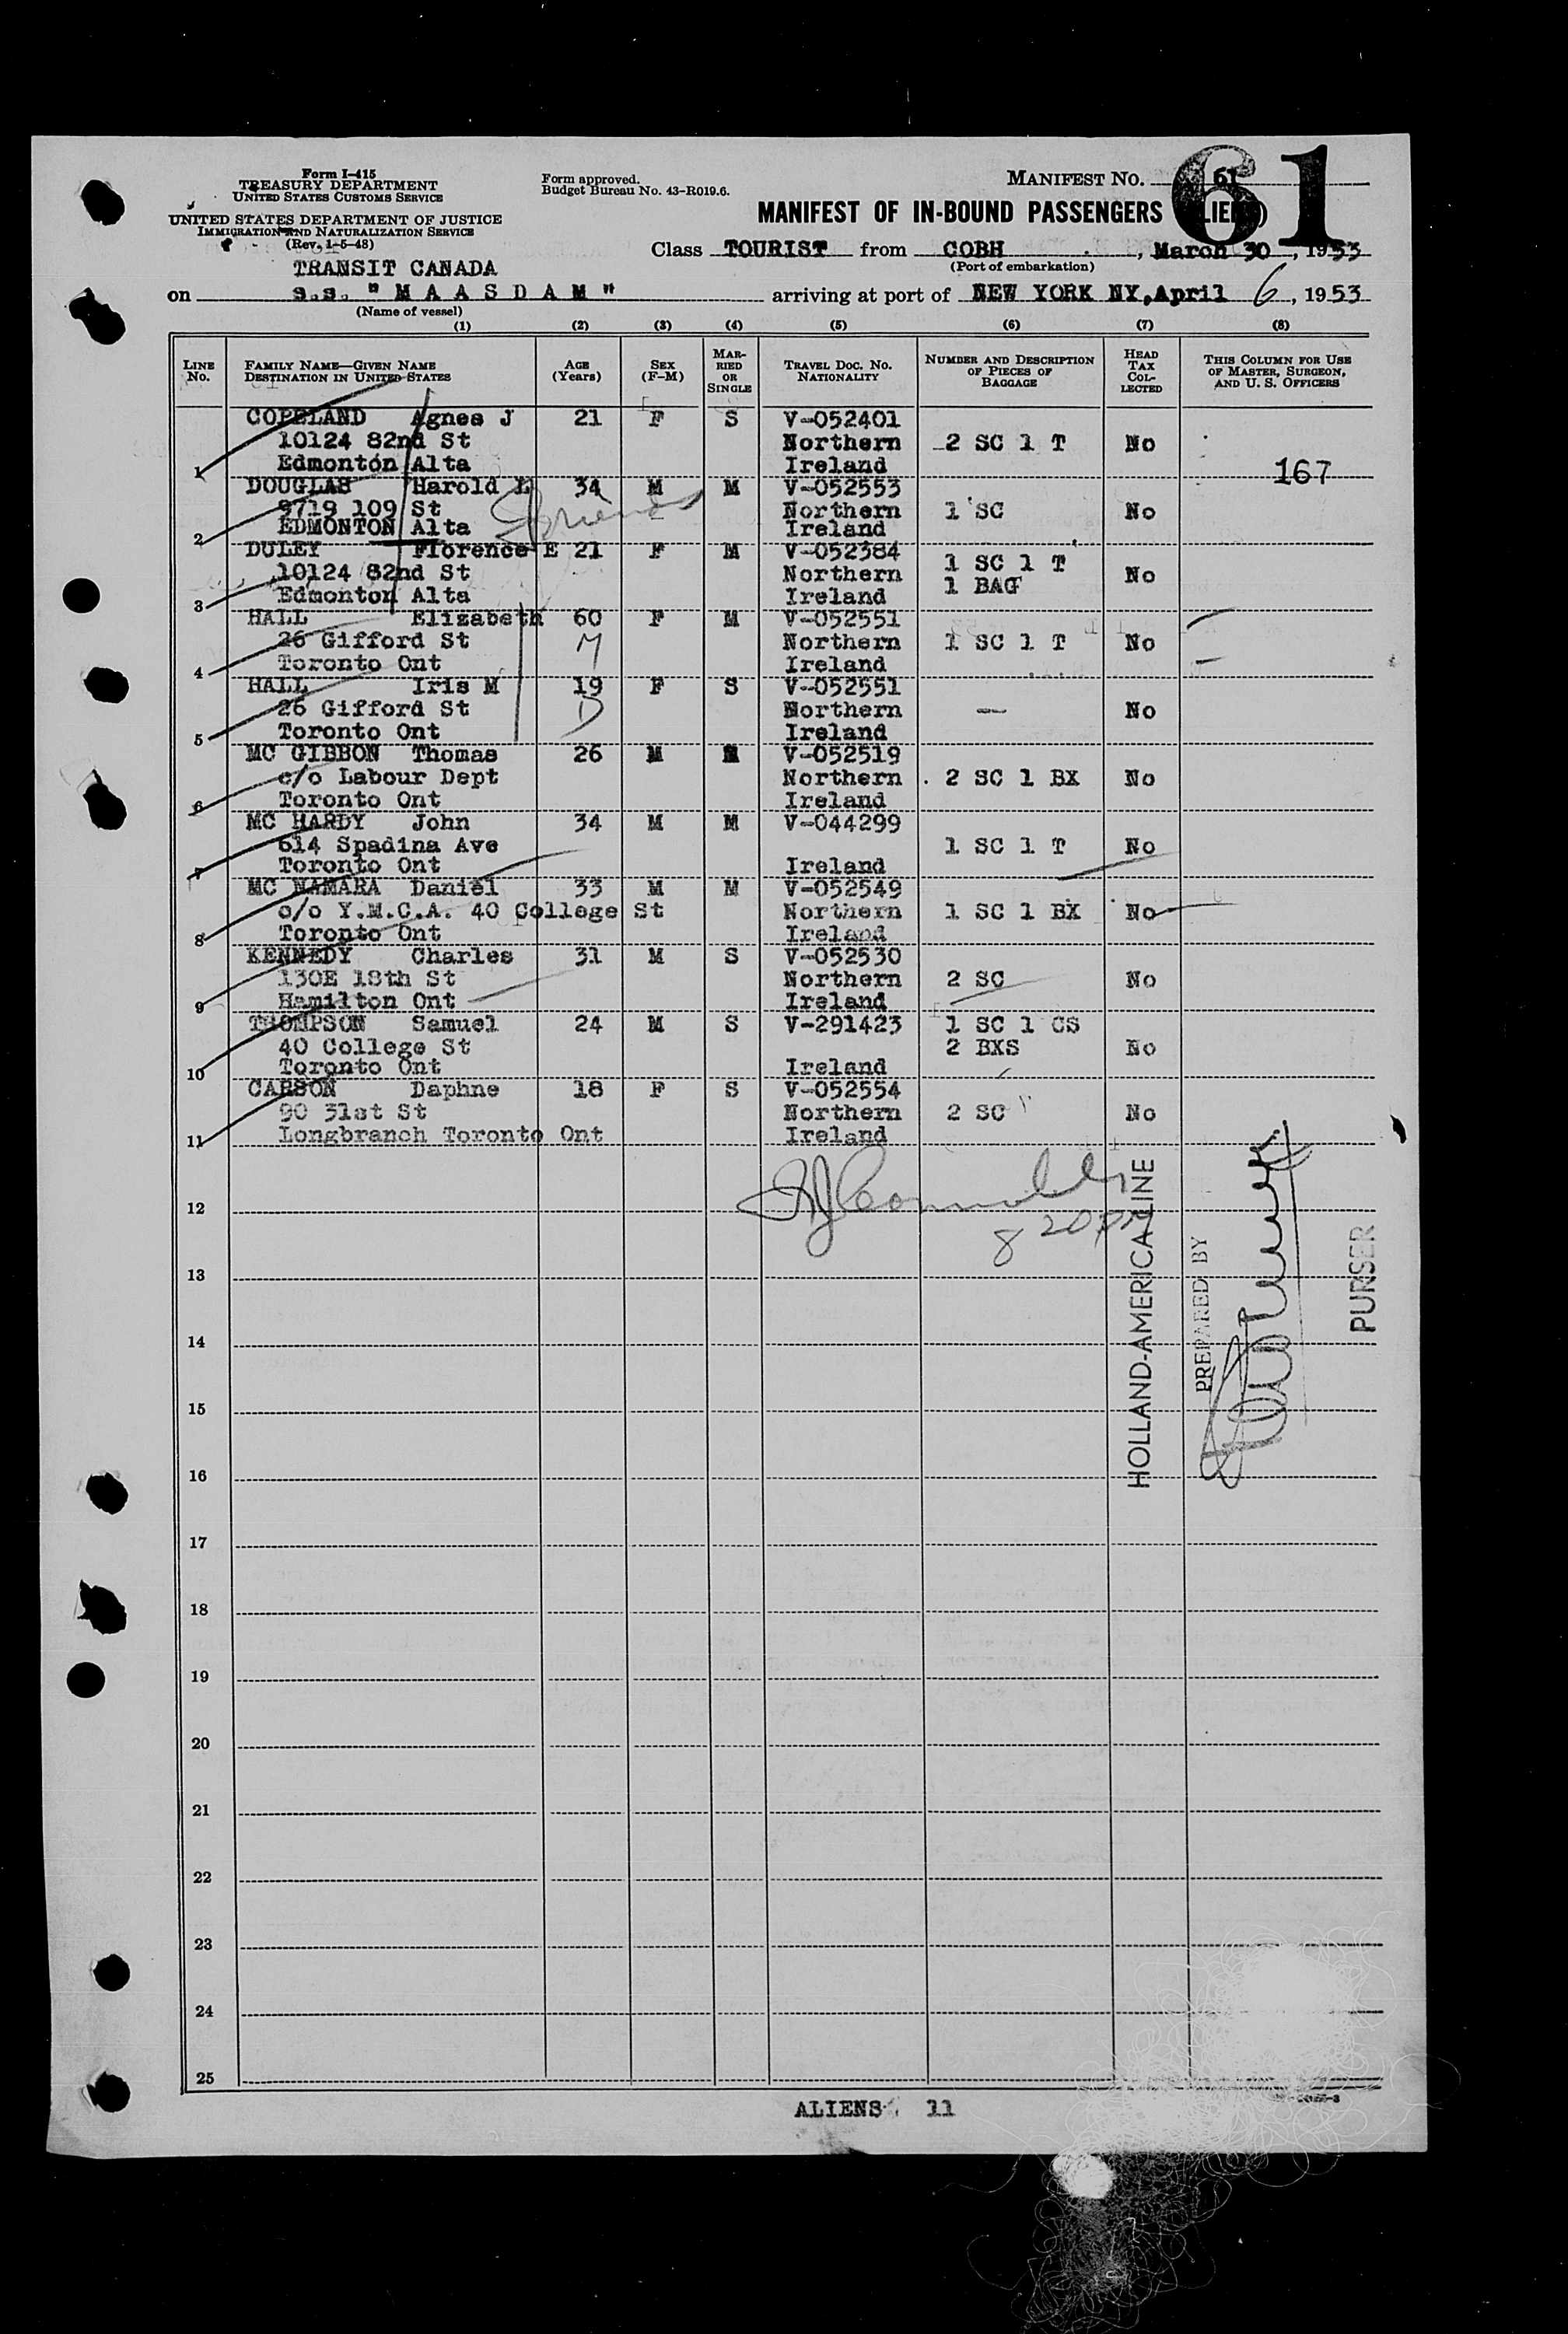 61
Form I-415
TREASURY DEPARTMENT
UNITED STATES CUSTOMS SERVICE
UNITED STATES DEPARTMENT OF JUSTICE
IMMIGRATION AND NATURALIZATION SERVICE
(Rev. 1-5-48)
Form approved.
Budget Bureau No. 43-R019.6.
MANIFEST NO. 61
MANIFEST OF IN-BOUND PASSENGERS (ALIENS)
Class TOURIST from COBH, March 30, 1953
(Port of embarkation)
TRANSIT CANADA
on s.s. "MAASDAM" arriving at port of NEW YORK NY, April 6, 1953
(Name of vessel)
(1) (2) (3) (4) (5) (6) (7) (8)
LINE No. FAMILY NAME—GIVEN NAME DESTINATION IN UNITED STATES AGE (Years) SEX (F-M) MARRIED OR SINGLE TRAVEL DOC. NO. NATIONALITY NUMBER AND DESCRIPTION OF PIECES OF BAGGAGE HEAD TAX COLLECTED THIS COLUMN FOR USE OF MASTER, SURGEON, AND U. S. OFFICERS
COPELAND Agnes J 21 F S V-052401
10124 82nd St Northern 2 SC 1 T No
1 Edmonton Alta Ireland 167
DOUGLAS Harold L 34 M M V-052553
9719 109 St Northern 1 SC No
2 EDMONTON Alta Ireland
DULEY Florence E 21 F M V-052384 1 SC 1 T
10124 82nd St Northern 1 BAG No
3 Edmonton Alta Ireland
HALL Elizabeth 60 F M V-052551
26 Gifford St M Northern 1 SC 1 T No
4 Toronto Ont Ireland
HALL Iris M 19 F S V-052551
26 Gifford St D Northern — No
5 Toronto Ont Ireland
MC GIBBON Thomas 26 M V-052519
c/o Labour Dept Northern 2 SC 1 BX No
6 Toronto Ont Ireland
MC HARDY John 34 M M V-044299
614 Spadina Ave 1 SC 1 T No
7 Toronto Ont Ireland
MC NAMARA Daniel 33 M M V-052549
c/o Y.M.C.A. 40 College St Northern 1 SC 1 BX No
8 Toronto Ont Ireland
KENNEDY Charles 31 M S V-052530
130E 18th St Northern 2 SC No
9 Hamilton Ont Ireland
THOMPSON Samuel 24 M S V-291423 1 SC 1 CS
40 College St 2 BXS No
10 Toronto Ont Ireland
CARSON Daphne 18 F S V-052554
90 31st St Northern 2 SC No
11 Longbranch Toronto Ont Ireland
12
8 20 PM
13
14
15
16
17
18
19
20
21
22
23
24
25
HOLLAND-AMERICA LINE
PREPARED BY
PURSER
ALIENS 11